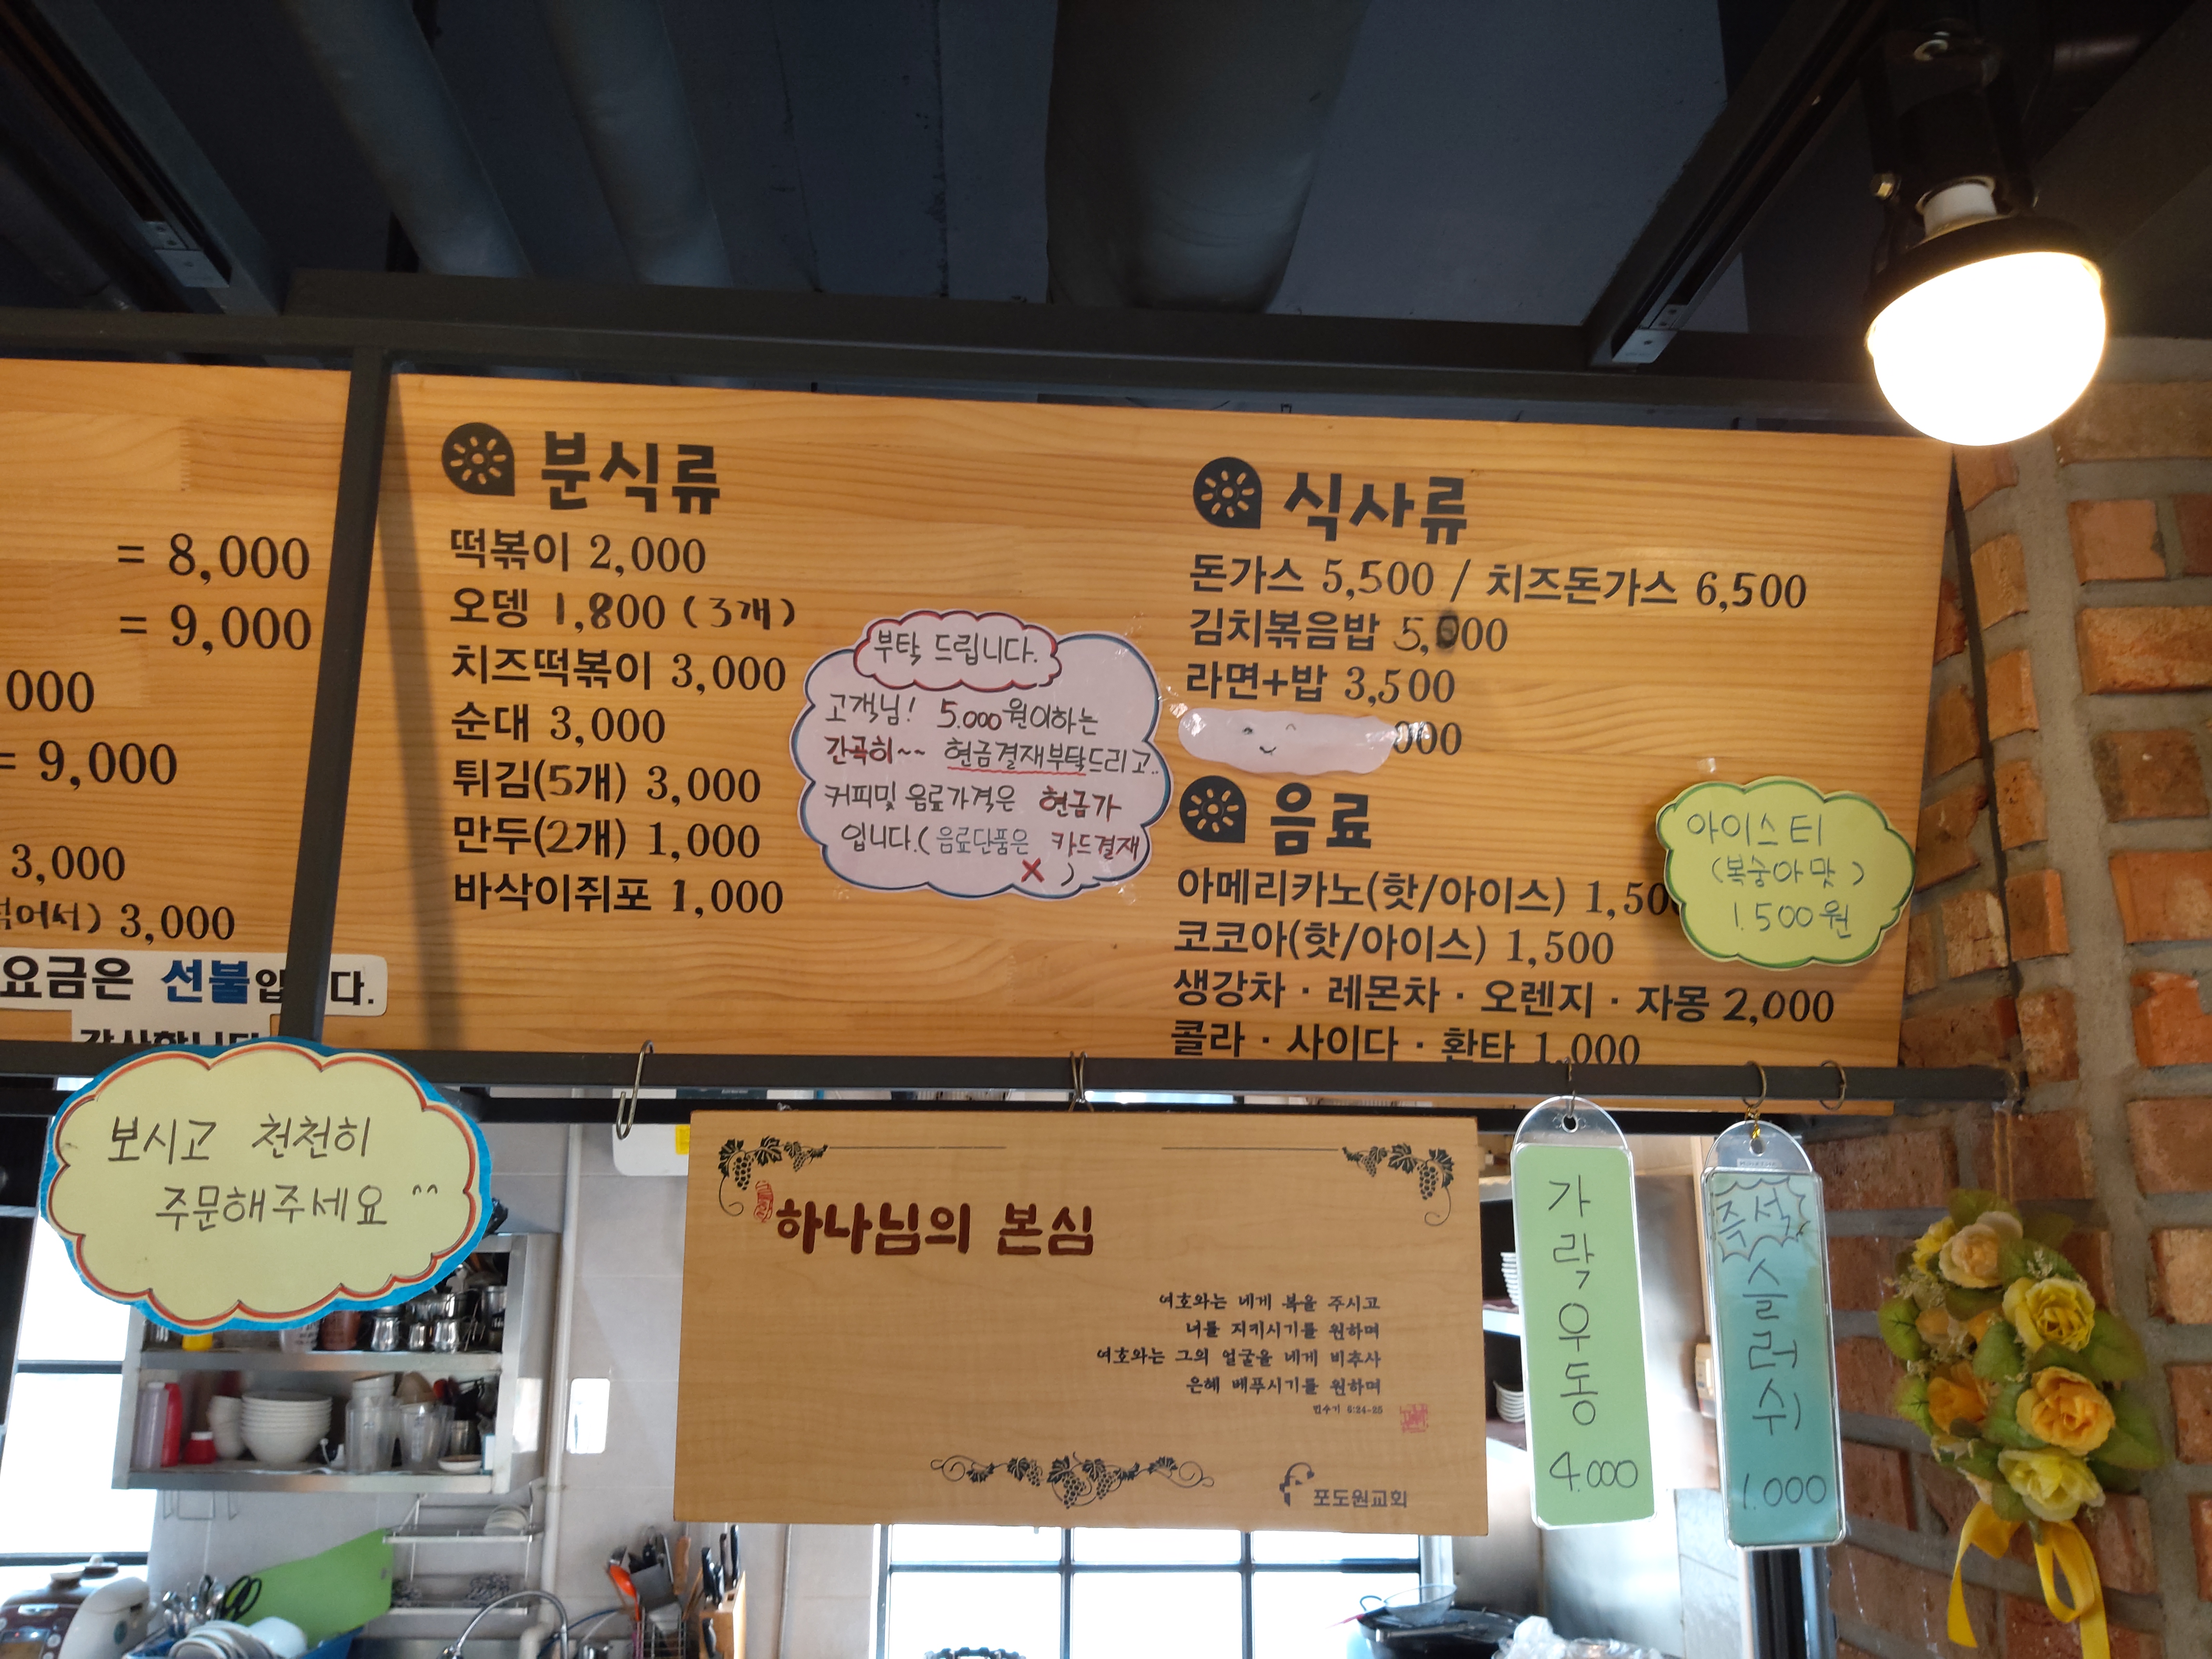 = 8,000
= 9,000
000
= 9,000
3,000
어서) 3,000
요금은 선불입 다.
분식류
떡볶이 2,000
오뎅 1,800 (3개)
치즈떡볶이 3,000
순대 3,000
튀김(5개) 3,000
만두(2개) 1,000
바삭이쥐포 1,000
부탁 드립니다.
고객님! 5.000원이하는
간곡히~~ 현금결재부탁드리고..
커피및 음료가격은 현금가
입니다.(음료단품은 카드결재
X)
식사류
돈가스 5,500 / 치즈돈가스 6,500
김치볶음밥 5,000
라면+밥 3,500
000
음료
아메리카노(핫/아이스) 1,50
코코아(핫/아이스) 1,500
생강차 · 레몬차 · 오렌지 · 자몽 2,000
콜라 · 사이다 · 환타 1,000
아이스티
(복숭아맛)
1.500원
보시고 천천히
주문해주세요^^
하나님의 본심
여호와는 네게 복을 주시고
너를 지키시기를 원하며
여호와는 그의 얼굴을 네게 비추사
은혜 베푸시기를 원하며
민수기 6:24-25
포도원교회
가락우동
4.000
즉석
슬러쉬
1.000